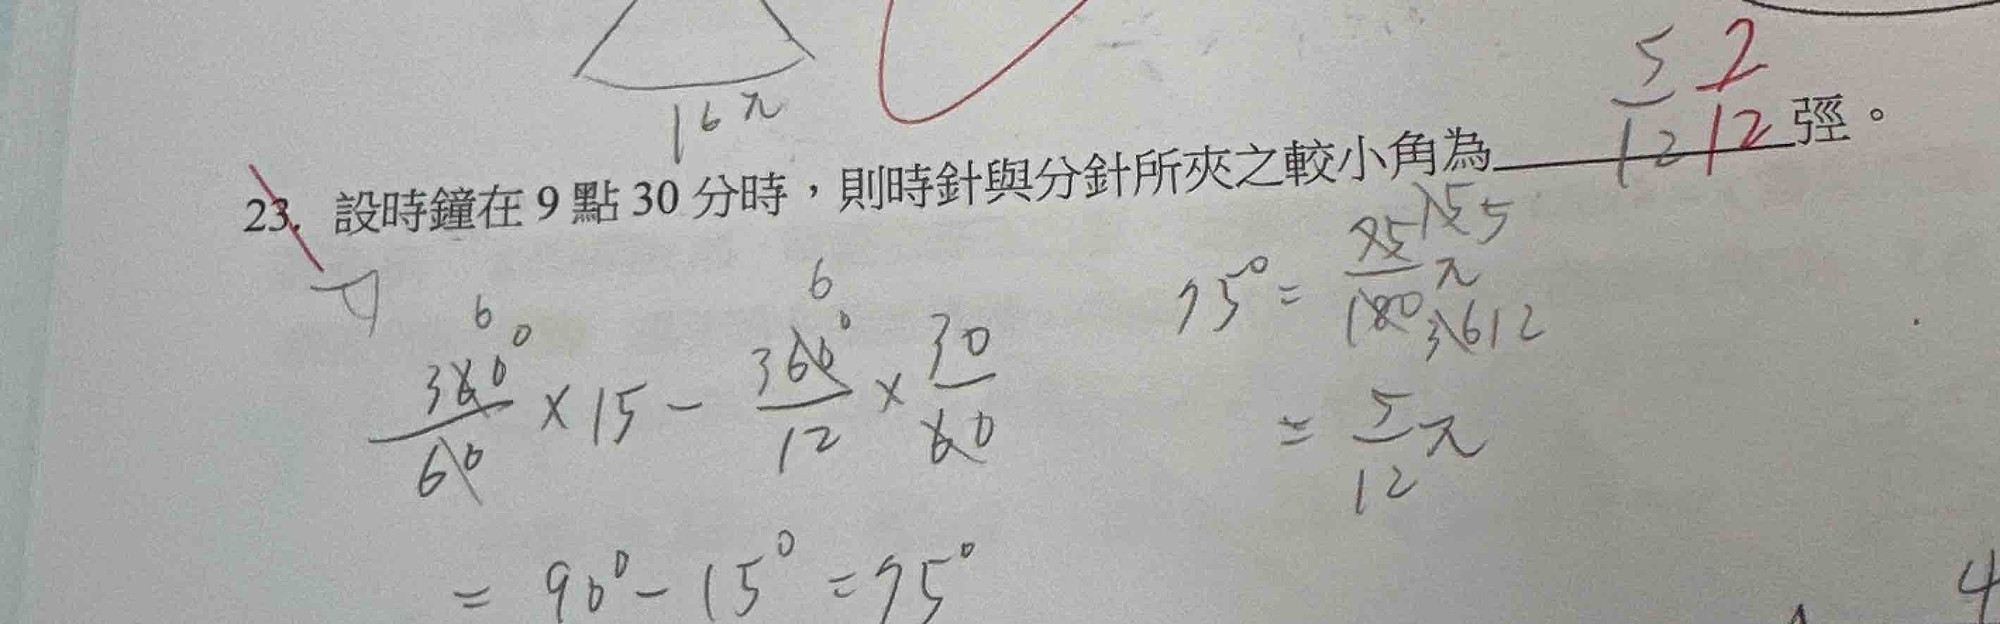 16π
23. 設時鐘在 9 點 30 分時，則時針與分針所夾之較小角為 5/12 7/12 弳。
360°/60 × 15 − 360°/12 × 30/60
= 90° − 15° = 75°
75° = 75/180 π
= 5/12 π
4